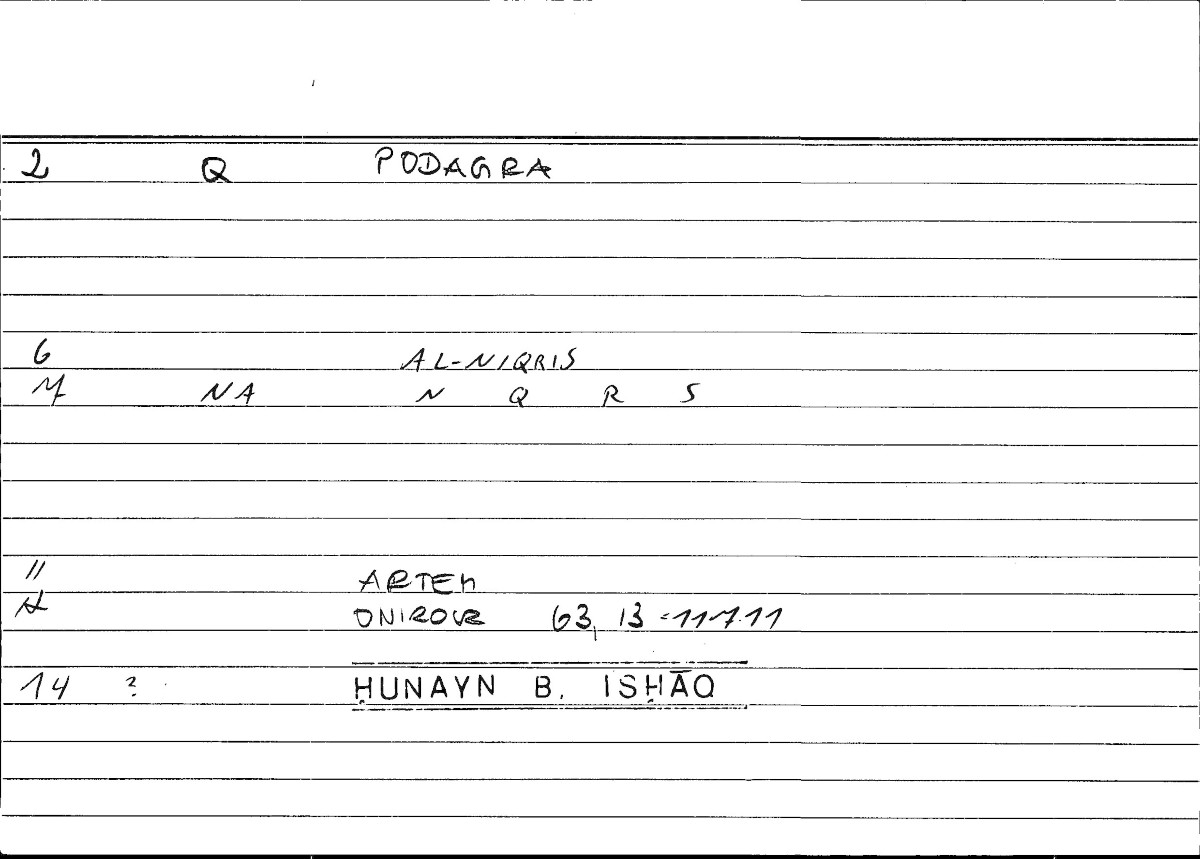 2 Q PODAGRA
6 AL-NIQRIS
NA N Q R S
11 ARTEM
ONIROCR 63, 13 = 117.11
14 ? ḤUNAYN B. ISḤĀQ